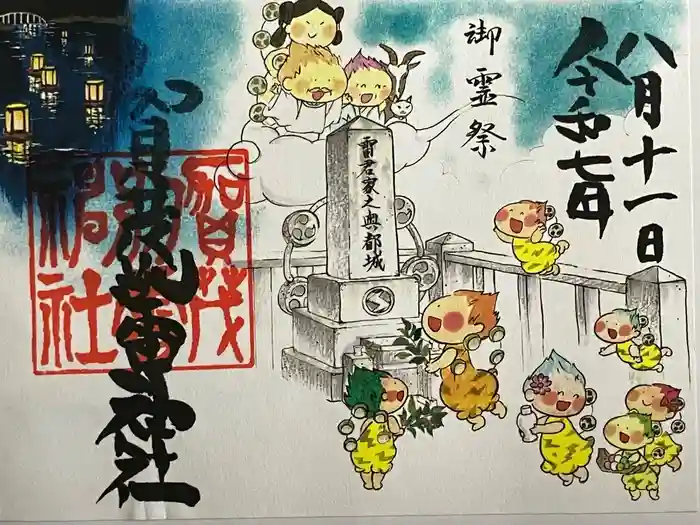 八月十一日
令和七年
御霊祭
雷君家之奥都城
賀茂別雷神社
賀茂
神社